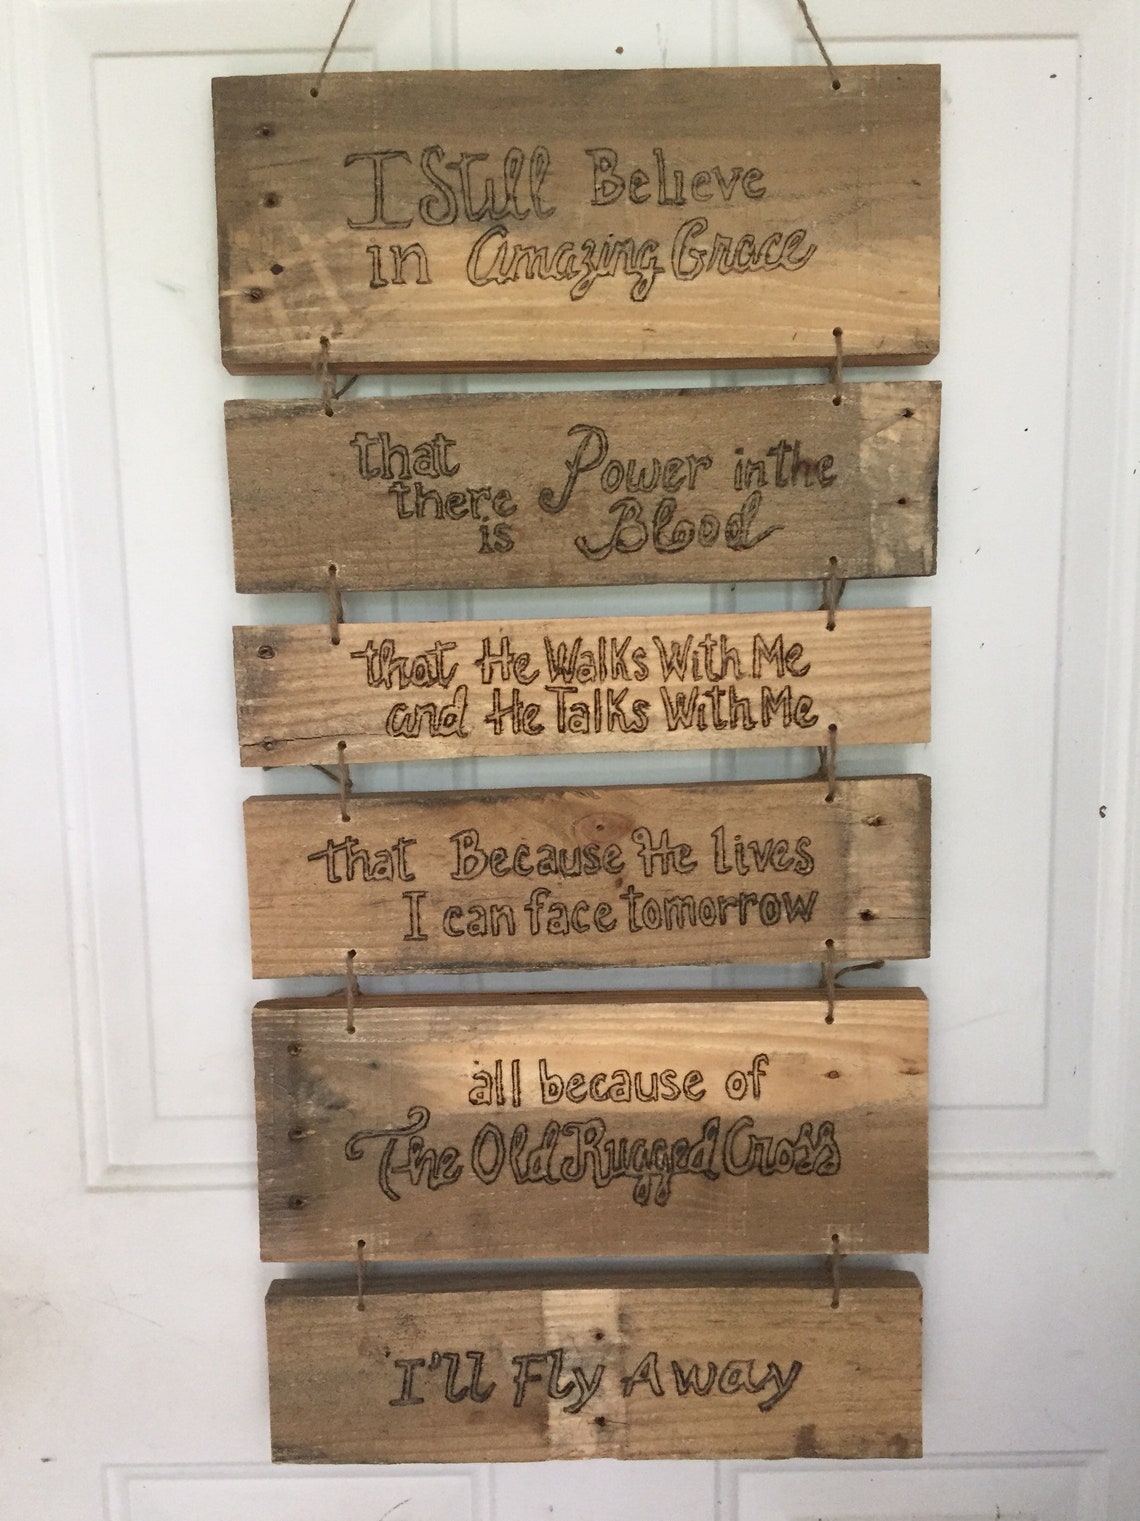 I Still Believe
in Amazing Grace
that
there
is
Power in the
Blood
that He Walks With Me
and He Talks With Me
that Because He lives
I can face tomorrow
all because of
The Old Rugged Cross
I'll Fly Away